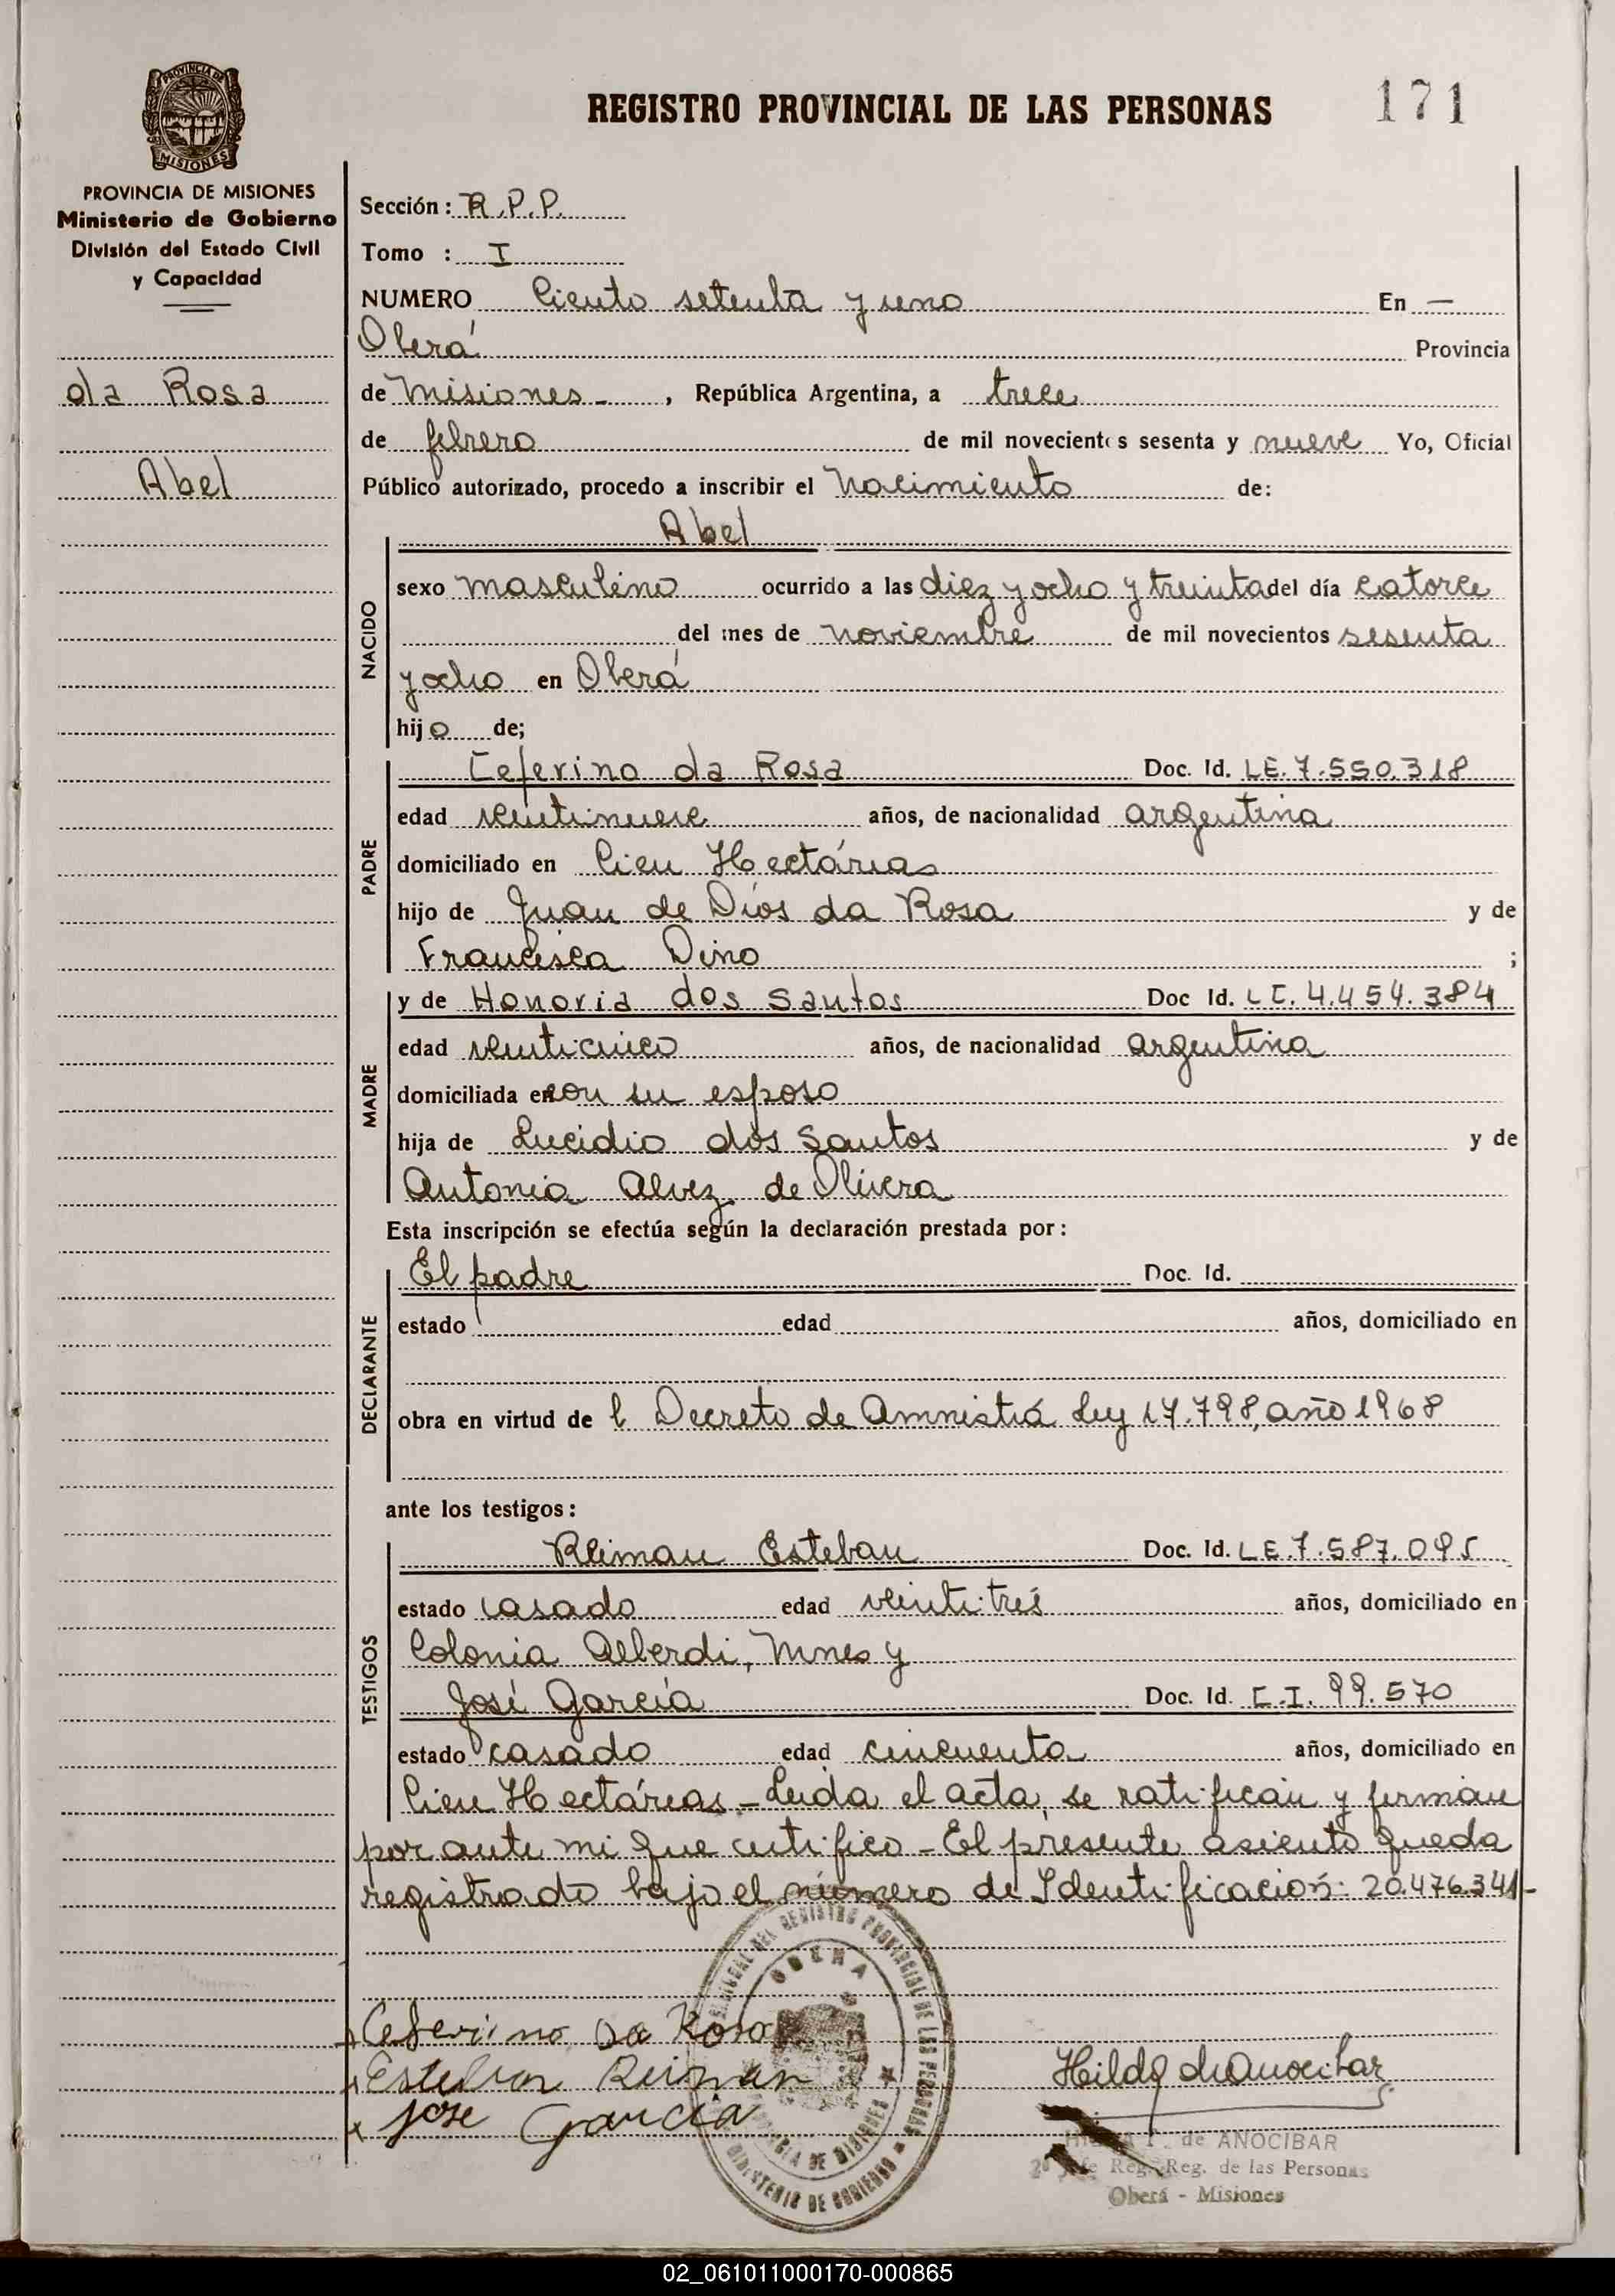 REGISTRO PROVINCIAL DE LAS PERSONAS 171
PROVINCIA DE MISIONES
PROVINCIA DE MISIONES
Ministerio de Gobierno
División del Estado Civil
y Capacidad
da Rosa
Abel
Sección: R.P.P.
Tomo : I
NUMERO Ciento setenta y uno En —
Oberá Provincia
de Misiones - , República Argentina, a trece
de febrero de mil novecientos sesenta y nueve Yo, Oficial
Público autorizado, procedo a inscribir el Nacimiento de:
Abel
NACIDO
sexo masculino ocurrido a las diez y ocho y treinta del día catorce
del mes de noviembre de mil novecientos sesenta
y ocho en Oberá
hijo de;
PADRE
Ceferino da Rosa Doc. Id. LE. 7.550.318
edad veintinueve años, de nacionalidad argentina
domiciliado en Cien Hectáreas
hijo de Juan de Dios da Rosa y de
Francisca Dino ;
MADRE
y de Honoria dos Santos Doc Id. LC. 4.454.384
edad veinticinco años, de nacionalidad argentina
domiciliada en con su esposo
hija de Lucidio dos Santos y de
Antonia Alvez de Olivera
Esta inscripción se efectúa según la declaración prestada por:
DECLARANTE
El padre Doc. Id.
estado edad años, domiciliado en
obra en virtud de l Decreto de Amnistía Ley 17.798, año 1968
ante los testigos:
TESTIGOS
Reiman Esteban Doc. Id. LE. 7.587.095
estado casado edad veintitrés años, domiciliado en
Colonia Alberdi, Mnes y
José García Doc. Id. C.I. 99.570
estado casado edad cincuenta años, domiciliado en
Cien Hectáreas - Leída el acta, se ratifican y firman
por ante mi que certifico - El presente asiento queda
registrado bajo el número de Identificación: 20.476.341-
Ceferino Da Rosa
Esteban Reiman
Jose Garcia
OBERA
PROVINCIA DE MISIONES
MINISTERIO DE GOBIERNO
REGISTRO PROVINCIAL DE LAS PERSONAS
Hilda de Anocibar
de ANOCIBAR
Reg. Reg. de las Personas
Oberá - Misiones
02_061011000170-000865